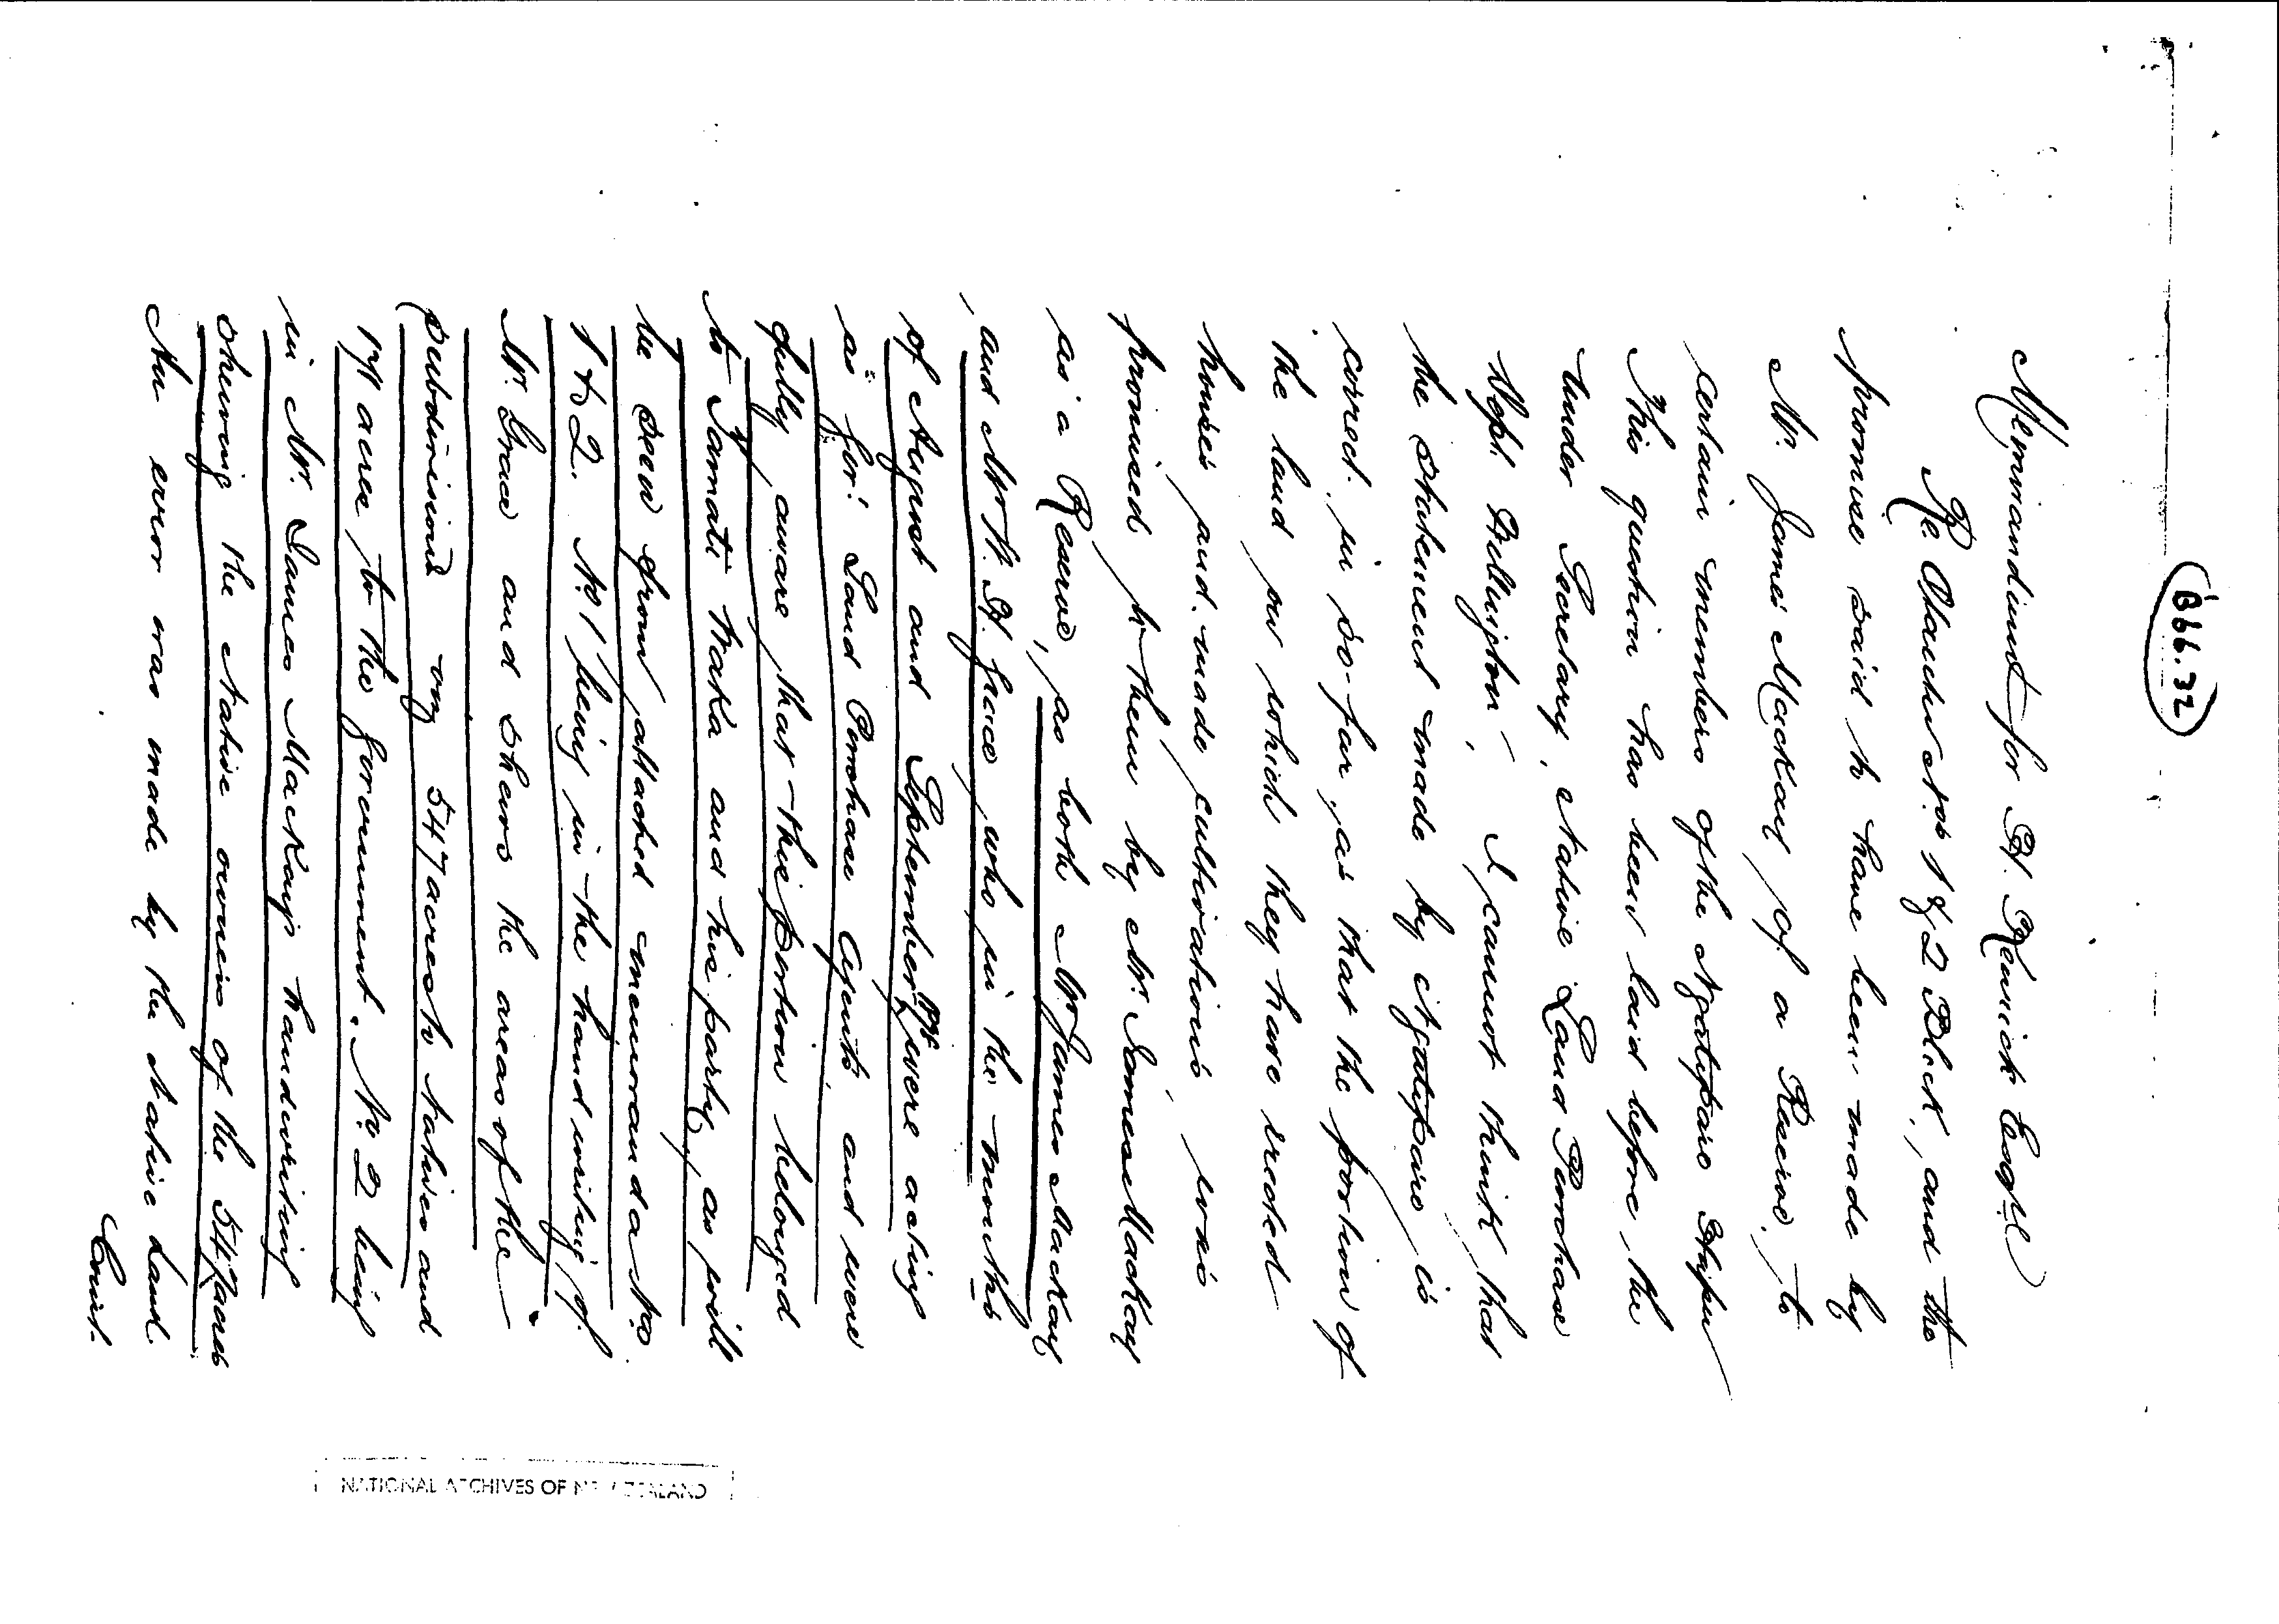 B66.32
Memorandum for H. Kenrick Esqre
Re Ohachu Nos 1 & 2 Block, and the
promise said to have been made by
Mr. James Mackay of a Reserve to
certain members of the Ngatiparo Hapu
This question has been laid before the
Under Secretary, Native Land Purchase
Dept. Wellington, I cannot think that
the statement made by Ngatiparo is
correct in so far as that the portion of
the land on which they have erected
houses and made cultivations was
promised to them by Mr. James Mackay
as a Reserve, as both Mr. James Mackay
and Mr W. H. Grace who in the months
of August and September were acting
as for Land Purchase Agents and were
fully aware that this portion belonged
to Tamati Waka and his party, as will
be seen from attached memoranda Nos
1 & 2. No 1 being in the handwriting of
Mr. Grace and shews the areas of the
subdivisions 547 acres to Natives and
171 acres to the Government. No. 2 being
in Mr. James Mackays handwriting
shewing the Native owners of the 547 acres
An error was made by the Native Land
Court.
NATIONAL ARCHIVES OF NEW ZEALAND